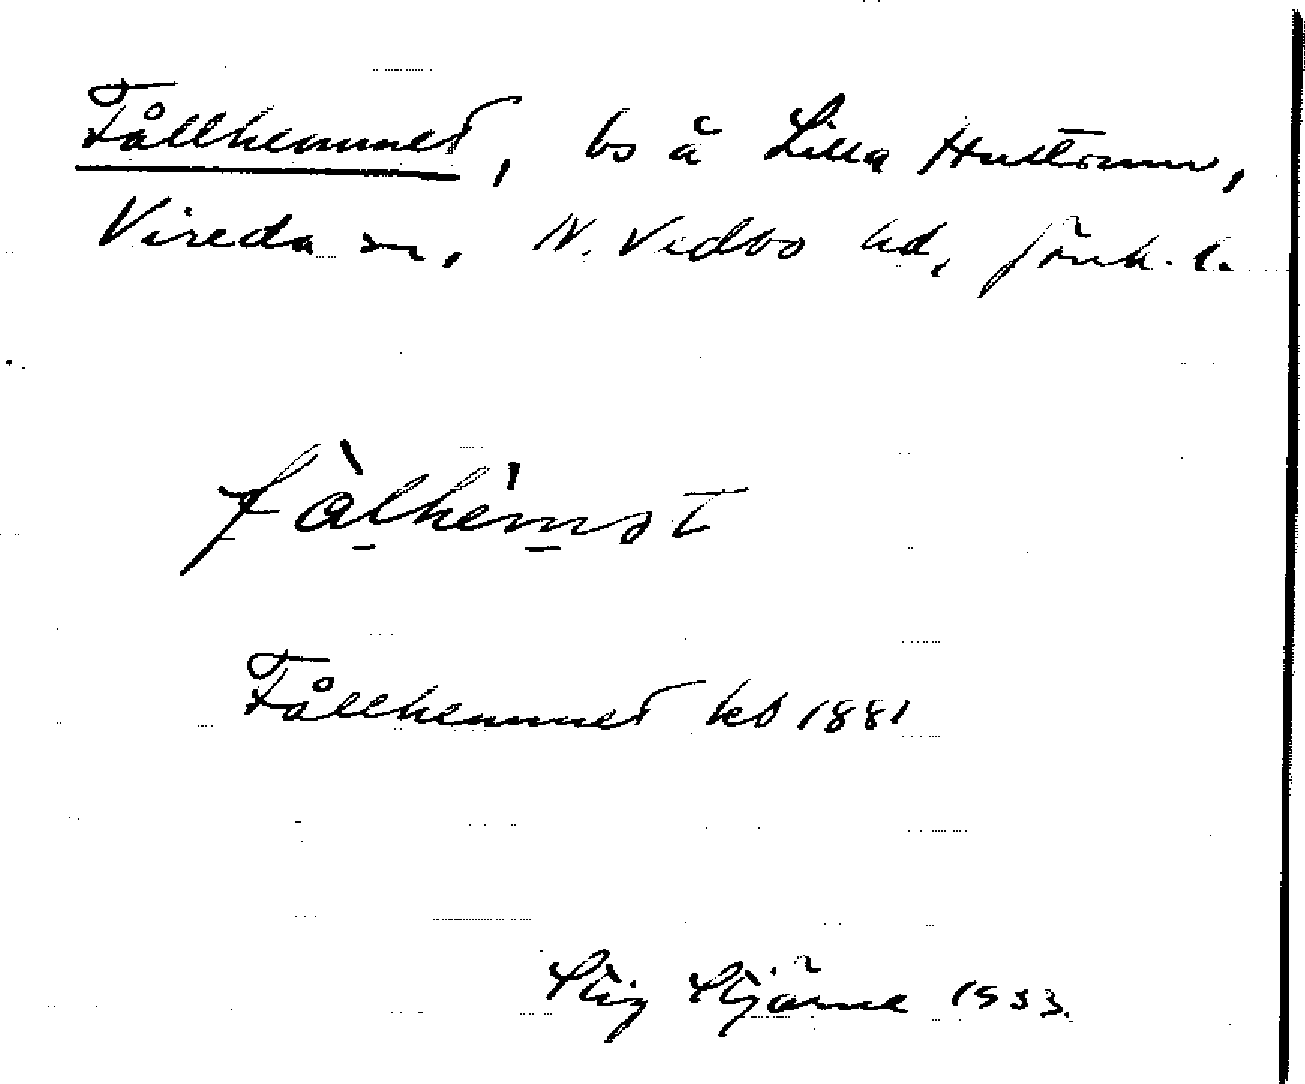 Fållhemmet, bs å Lilla Hultarum,
Vireda sn, N. Vedbo hd, Jönk. l.
fàlhemət
Fållhemmet kb 1881
Stig Stjärne 1933.